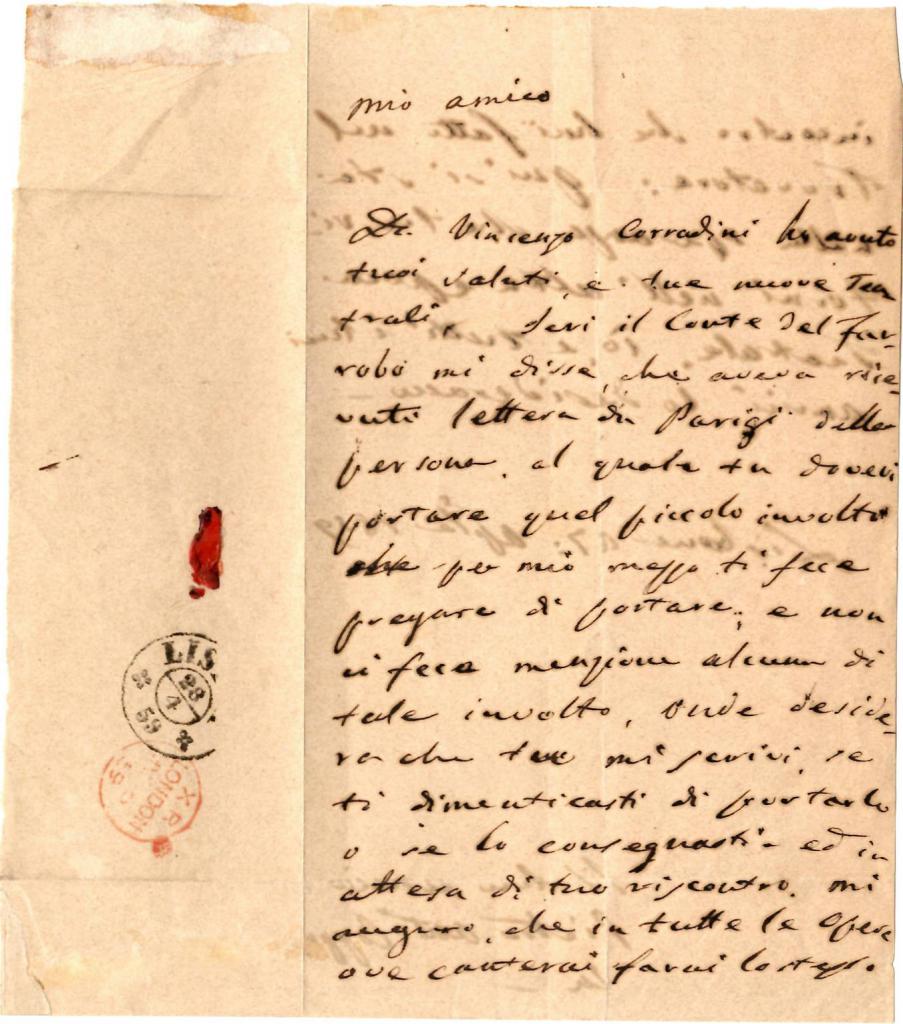 mio amico
Da Vincenzo Corradini ho avuto
tuoi saluti, e tue nuove tea
trali, Jeri il Conte del Far-
robo mi disse, che aveva rice-
vuti lettera da Parigi della
persona, al quale tu dovevi
portare quel piccolo involto
che per mio mezzo ti fece
pregare di portare; e non
ci fece menzione alcuna di
tale involto, onde deside-
ra che tu mi scrivi, se
ti dimenticasti di portarlo
o se lo consegnasti - ed in
attesa di tuo riscontro, mi
auguro, che in tutte le Opere
ove canterai farai lo stesso.
LIS
28
4
59
LONDON